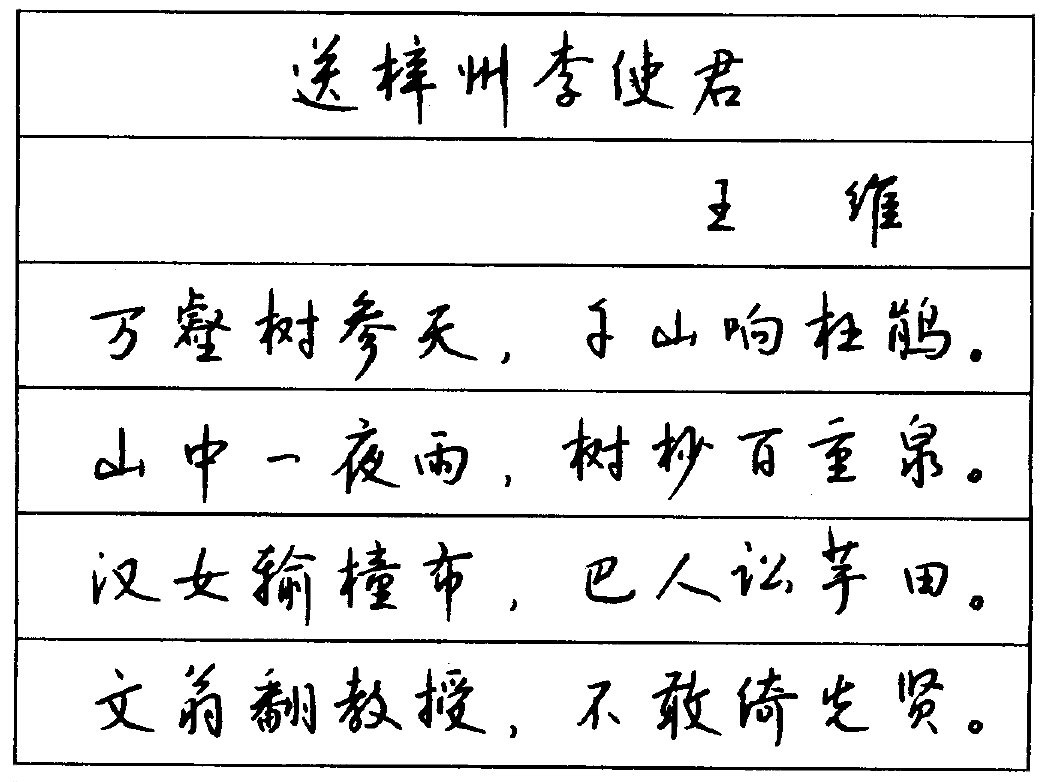 送梓州李使君
王 维
万壑树参天，千山响杜鹃。
山中一夜雨，树杪百重泉。
汉女输橦布，巴人讼芋田。
文翁翻教授，不敢倚先贤。